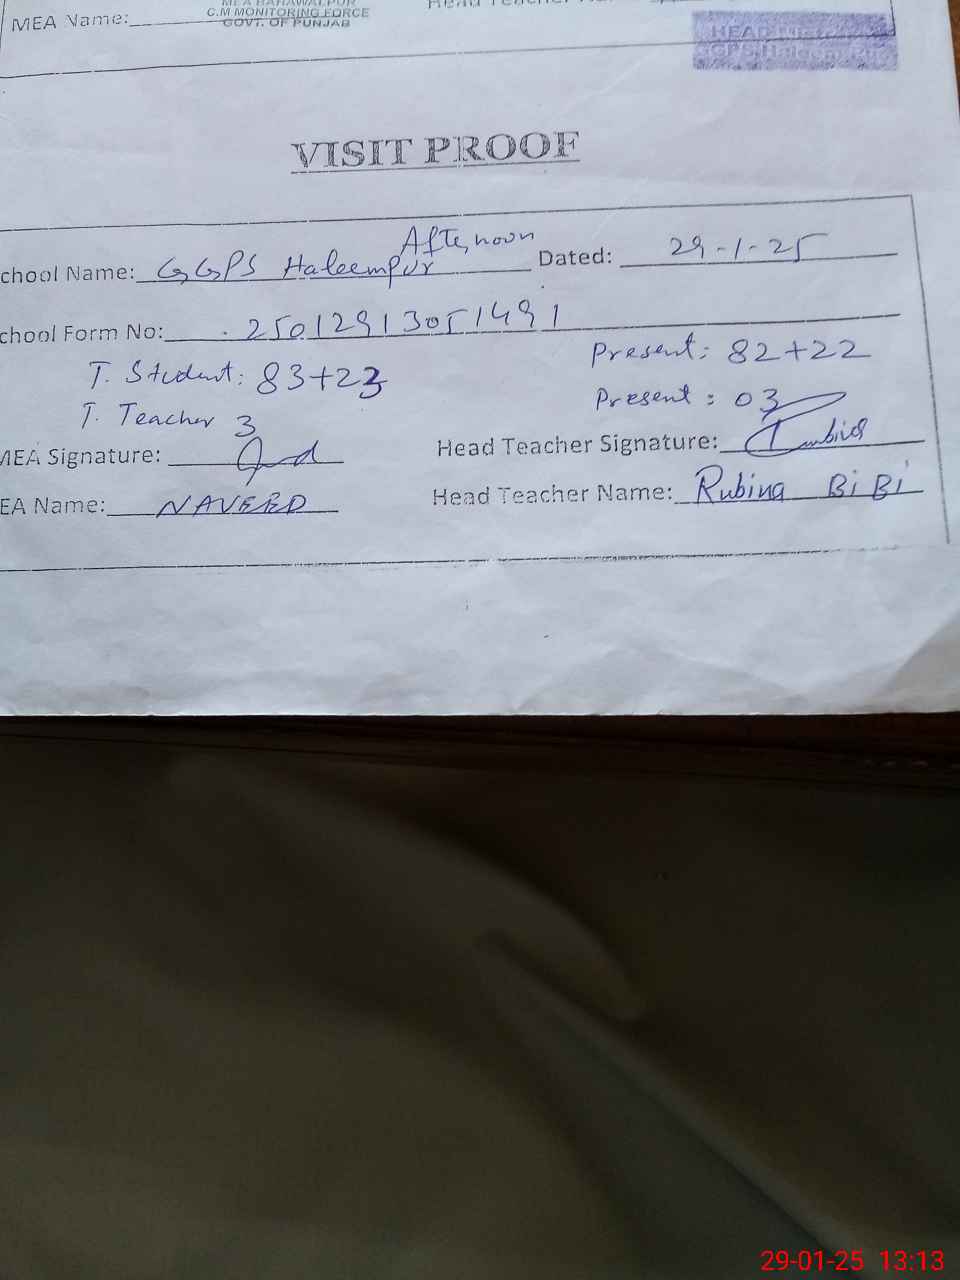 MEA BAHAWALPUR
MEA Name: C.M MONITORING FORCE
GOVT. OF PUNJAB
HEAD
GPS Haleem Pur
VISIT PROOF
Afternoon
chool Name: GGPS Haleempur Dated: 29-1-25
chool Form No: 25012913051491
T. Student: 83+23 Present: 82+22
T. Teacher 3 Present: 03
MEA Signature: Head Teacher Signature: Rubina
EA Name: NAVEED Head Teacher Name: Rubina BiBi
29-01-25 13:13